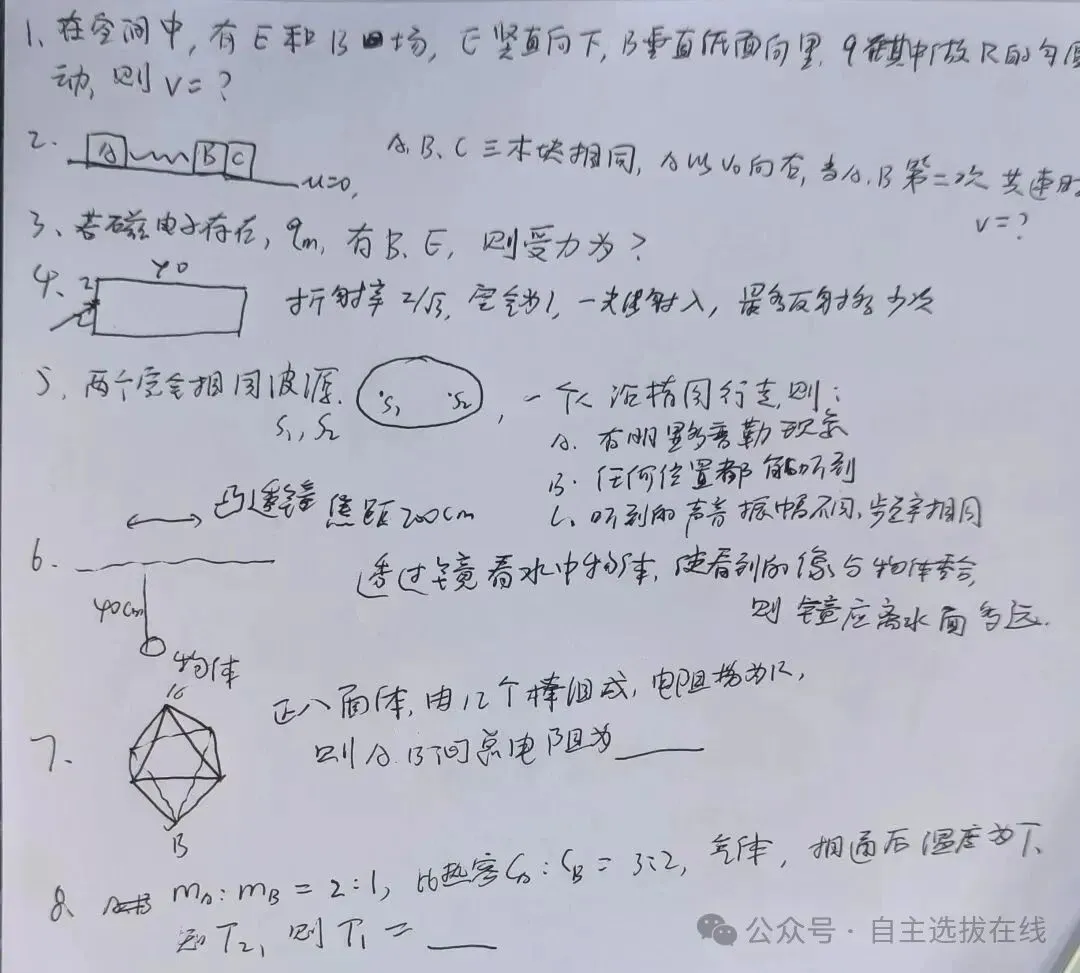 1、在空间中,有E和B 场,E竖直向下,B垂直纸面向里,q在其中做R的匀圆
动,则v=?
2. A B C A、B、C三木块相同,A以v₀向右,当A、B第二次共速时
μ=0, v=?
3、若磁电子存在,qm,有B、E,则受力为?
4、 2 40 折射率2/√3,空气为1,一光线射入,最多反射多少次
5、两个完全相同波源. S₁ S₂ ,一个人沿椭圆行走,则:
S₁,S₂
A. 有明显多普勒现象
B. 任何位置都能听到
C、听到的声音振幅不同,频率相同
凸透镜 焦距200cm
6. 透过镜看水中物体,使看到的像与物体重合,
40cm 则镜应离水面多远.
物体
正八面体,由12个棒组成,电阻均为R,
7. 则A.B间总电阻为____
B
8、 mA:mB=2:1,比热容CA:CB=3:2,气体,相通后温度为T、
知T₂,则T₁=____
公众号·自主选拔在线